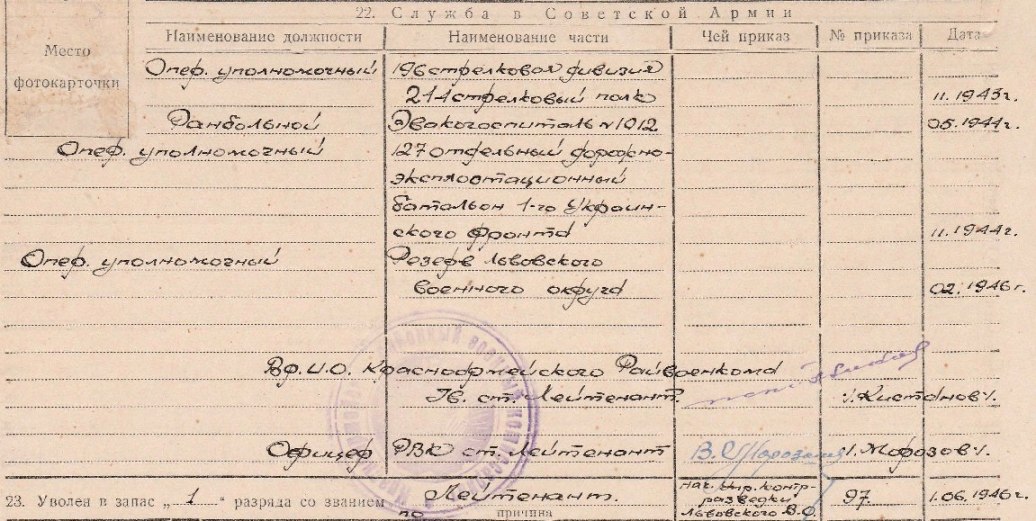 22. Служба в Советской Армии
Место фотокарточки
Наименование должности Наименование части Чей приказ № приказа Дата
Опер. уполномочный 196 стрелковая дивизия
214 стрелковый полк 11.1943г.
Ранбольной Эвакогоспиталь №1012 05.1944г.
Опер. уполномочный 127 отдельный дорожно-
эксплоатационный
батальон 1-го Украин-
ского фронта 11.1944г.
Опер. уполномочный Резерв Львовского
военного округа 02.1946г.
Вр.И.О. Красноармейского Райвоенкома
Гв. ст. Лейтенант. /.Кистанов/.
Офицер РВК ст. лейтенант /.Морозов/.
23. Уволен в запас „1“ разряда со званием Лейтенант. нач. упр. контр- 97 1.06.1946г.
разведки
по причина Львовского В.О.